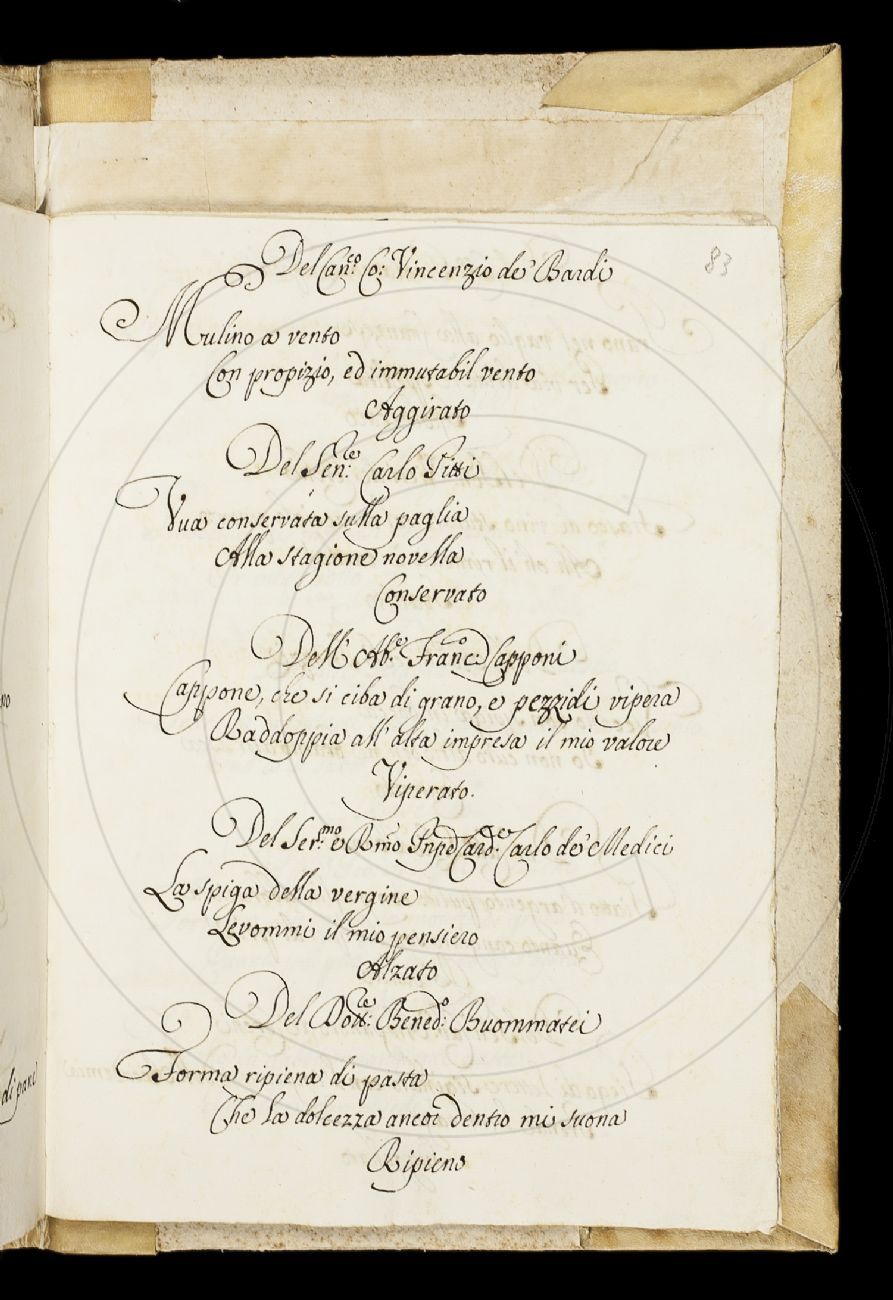 83
Del Can.co Co: Vincenzio de' Bardi
Mulino a vento
Con propizio, ed immutabil vento
Aggirato
Del Sen:re Carlo Pitti
Vua conservata sulla paglia
Alla stagione novella
Conservato
Dell' Ab.e Franc.o Capponi
Cappone, che si ciba di grano, e pezzi di vipera
Raddoppia all' alta impresa il mio valore
Viperato.
Del Ser.mo e Rmo Pnpe Card.e Carlo de' Medici
La spiga della vergine
Levommi il mio pensiero
Alzato
Del Dott:re Bened:o Buommatei
Forma ripiena di pasta
Che la dolcezza ancor dentro mi suona
Ripieno
di pane